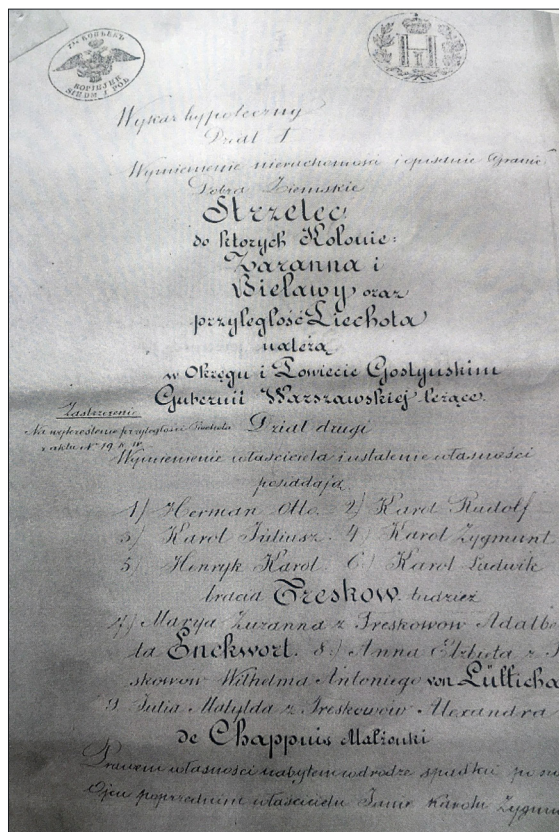 75 КОПѢЕКЪ
Wykaz hypoteczny
Dział I
Wymienienie nieruchomości i opisanie Granic
Dobra Ziemskie
Strzelec
do ktorych Kolonie:
Zazanna i
Bielawy oraz
przyległość Liechota
należą
w Okręgu i Powiecie Gostyńskim
Gubernii Warszawskiej leżące.
Zastrzeżenie
Dział drugi
Wymienienie właściciela i ustalenie własności
posiadają
1) Herman Otto. 2) Karol Rudolf
3) Karol Juliusz. 4) Karol Zygmunt
5) Henryk Karol. 6) Karol Ludwik
bracia Treskow tudzież
7) Marya Zuzanna z Treskowow Adalbe
ta Enckwort. 8) Anna Elżbieta z
skowow Wilhelma Antoniego von Lütticha
9. Julia Matylda z Treskowów Alexandra
de Chappuis Małżonki
Prawem własności nabytem w drodze spadku po
Ojcu poprzednim właścicielu Janie Karolu Zygmu